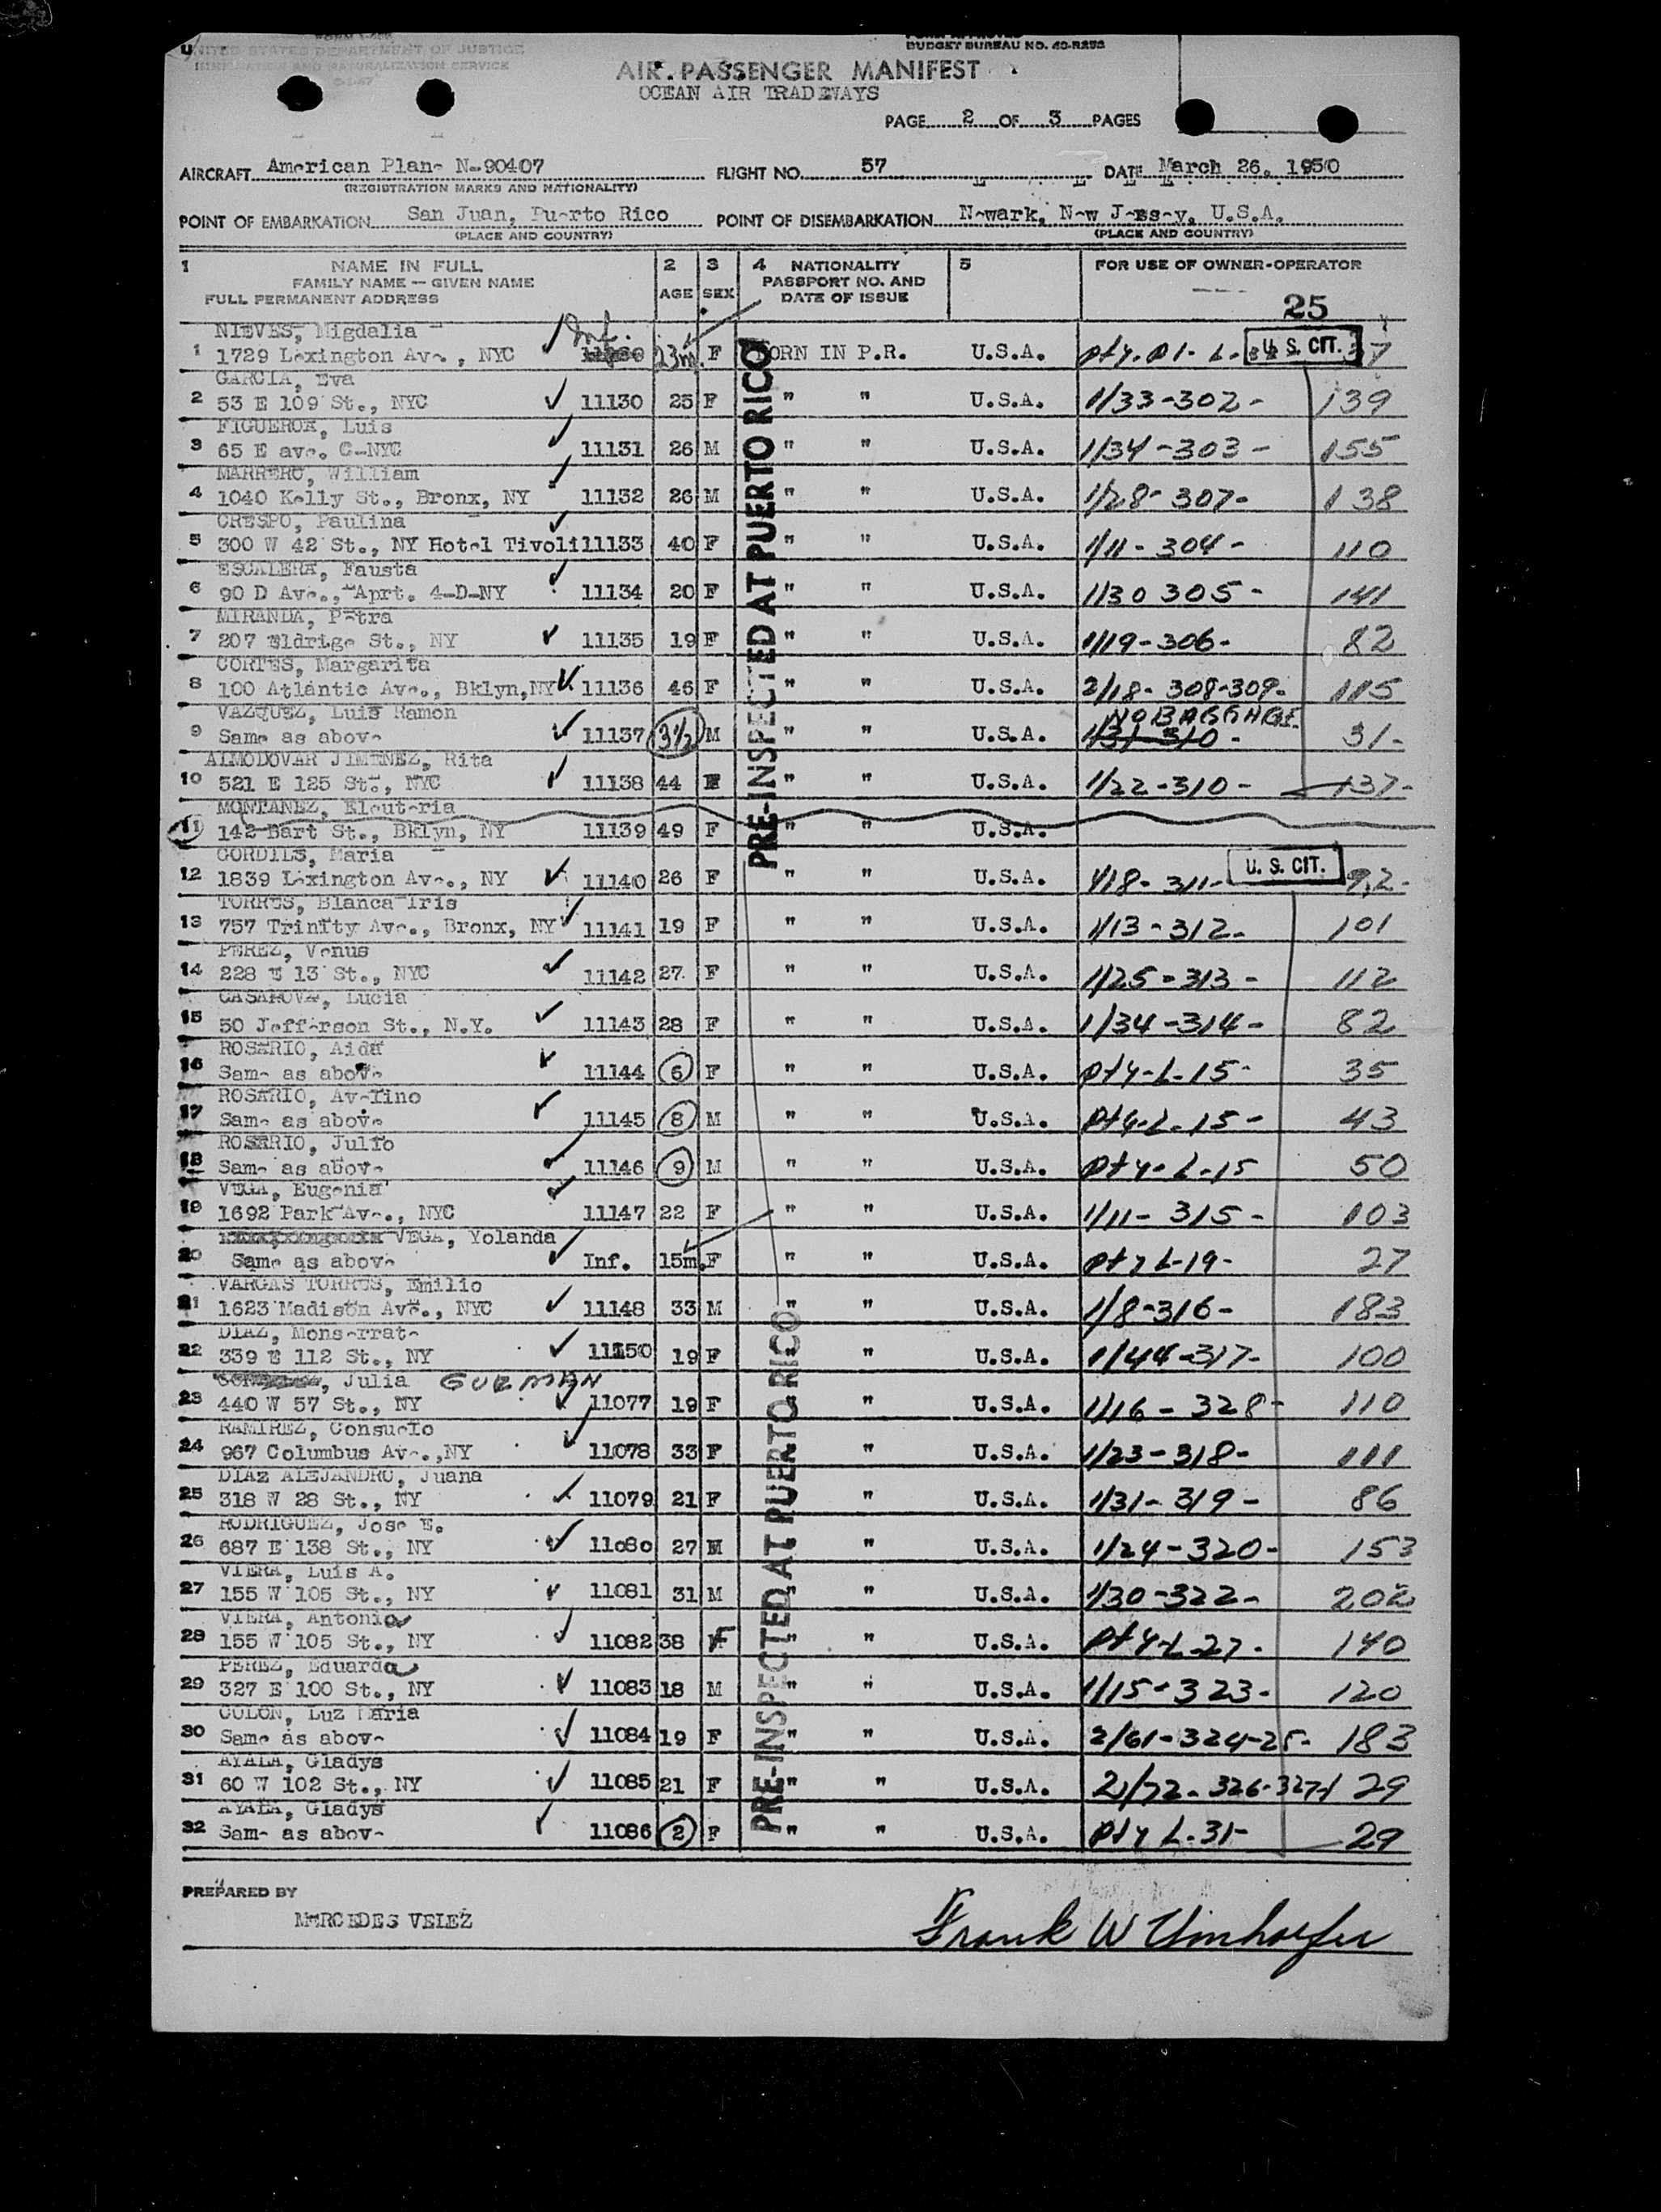 UNITED STATES DEPARTMENT OF JUSTICE
IMMIGRATION AND NATURALIZATION SERVICE
BUDGET BUREAU NO. 43-R293
AIR PASSENGER MANIFEST
OCEAN AIR TRADEWAYS
PAGE 2 OF 3 PAGES
AIRCRAFT American Plane N-90407 FLIGHT NO. 57 DATE March 26, 1950
(REGISTRATION MARKS AND NATIONALITY)
POINT OF EMBARKATION San Juan, Puerto Rico POINT OF DISEMBARKATION Newark, New Jersey, U.S.A.
(PLACE AND COUNTRY) (PLACE AND COUNTRY)
1 NAME IN FULL 2 3 4 NATIONALITY 5 FOR USE OF OWNER-OPERATOR
FAMILY NAME — GIVEN NAME AGE SEX PASSPORT NO. AND
FULL PERMANENT ADDRESS DATE OF ISSUE
25
NIEVES, Migdalia Inf.
1 1729 Lexington Ave., NYC 23m F BORN IN P.R. U.S.A. U. S. CIT. 37
GARCIA, Eva
2 53 E 109 St., NYC 11130 25 F " " U.S.A. 1/33-302- 139
FIGUEROA, Luis
3 65 E ave. C-NYC 11131 26 M " " U.S.A. 1/34-303- 155
MARRERO, William
4 1040 Kelly St., Bronx, NY 11132 26 M " " U.S.A. 1/28-307- 138
CRESPO, Paulina
5 300 W 42 St., NY Hotel Tivoli 11133 40 F " " U.S.A. 1/11-304- 110
ESCALERA, Fausta
6 90 D Ave., Aprt. 4-D-NY 11134 20 F " " U.S.A. 1/30 305- 141
MIRANDA, Petra
7 207 Eldrige St., NY 11135 19 F " " U.S.A. 1/19-306- 82
CORTES, Margarita
8 100 Atlantic Ave., Bklyn,NY 11136 46 F " " U.S.A. 2/18-308-309- 115
VAZQUEZ, Luis Ramon NO BAGGAGE
9 Same as above 11137 3½ M " " U.S.A. 1/31-310- 31-
ALMODOVAR JIMENEZ, Rita
10 521 E 125 St., NYC 11138 44 F " " U.S.A. 1/22-310- 137-
MONTANEZ, Eleuteria
11 142 Bart St., Bklyn, NY 11139 49 F " " U.S.A.
CORDILS, Maria
12 1839 Lexington Ave., NY 11140 26 F " " U.S.A. 1/18-311- U. S. CIT. 92-
TORRES, Blanca Iris
13 757 Trinity Ave., Bronx, NY 11141 19 F " " U.S.A. 1/13-312- 101
PEREZ, Venus
14 228 E 13 St., NYC 11142 27 F " " U.S.A. 1/25-313- 112
CASANOVA, Lucia
15 50 Jefferson St., N.Y. 11143 28 F " " U.S.A. 1/34-314- 82
ROSARIO, Aida
16 Same as above 11144 6 F " " U.S.A. pty-L-15- 35
ROSARIO, Avelino
17 Same as above 11145 8 M " " U.S.A. pty-L-15- 43
ROSARIO, Julio
18 Same as above 11146 9 M " " U.S.A. pty-L-15 50
VEGA, Eugenia
19 1692 Park Ave., NYC 11147 22 F " " U.S.A. 1/11-315- 103
VEGA, Yolanda
20 Same as above Inf. 15m. F " " U.S.A. pty L-19- 27
VARGAS TORRES, Emilio
21 1623 Madison Ave., NYC 11148 33 M " " U.S.A. 1/8-316- 183
DIAZ, Monserrate
22 339 E 112 St., NY 11150 19 F " " U.S.A. 1/44-317- 100
, Julia GUZMAN
23 440 W 57 St., NY 11077 19 F " " U.S.A. 1/16-328- 110
RAMIREZ, Consuelo
24 967 Columbus Ave.,NY 11078 33 F " " U.S.A. 1/23-318- 111
DIAZ ALEJANDRO, Juana
25 318 W 28 St., NY 11079 21 F " " U.S.A. 1/31-319- 86
RODRIGUEZ, Jose E.
26 687 E 138 St., NY 11080 27 M " " U.S.A. 1/24-320- 153
VIERA, Luis A.
27 155 W 105 St., NY 11081 31 M " " U.S.A. 1/30-322- 202
VIERA, Antonia
28 155 W 105 St., NY 11082 38 F " " U.S.A. pty-L-27- 140
PEREZ, Eduarda
29 327 E 100 St., NY 11083 18 M " " U.S.A. 1/15-323- 120
COLON, Luz Maria
30 Same as above 11084 19 F " " U.S.A. 2/61-324-25- 183
AYALA, Gladys
31 60 W 102 St., NY 11085 21 F " " U.S.A. 2/72-326-327-1 29
AYALA, Gladys
32 Same as above 11086 2 F " " U.S.A. pty L-31- 29
PRE-INSPECTED AT PUERTO RICO
PRE-INSPECTED AT PUERTO RICO
PREPARED BY
MERCEDES VELEZ
Frank W